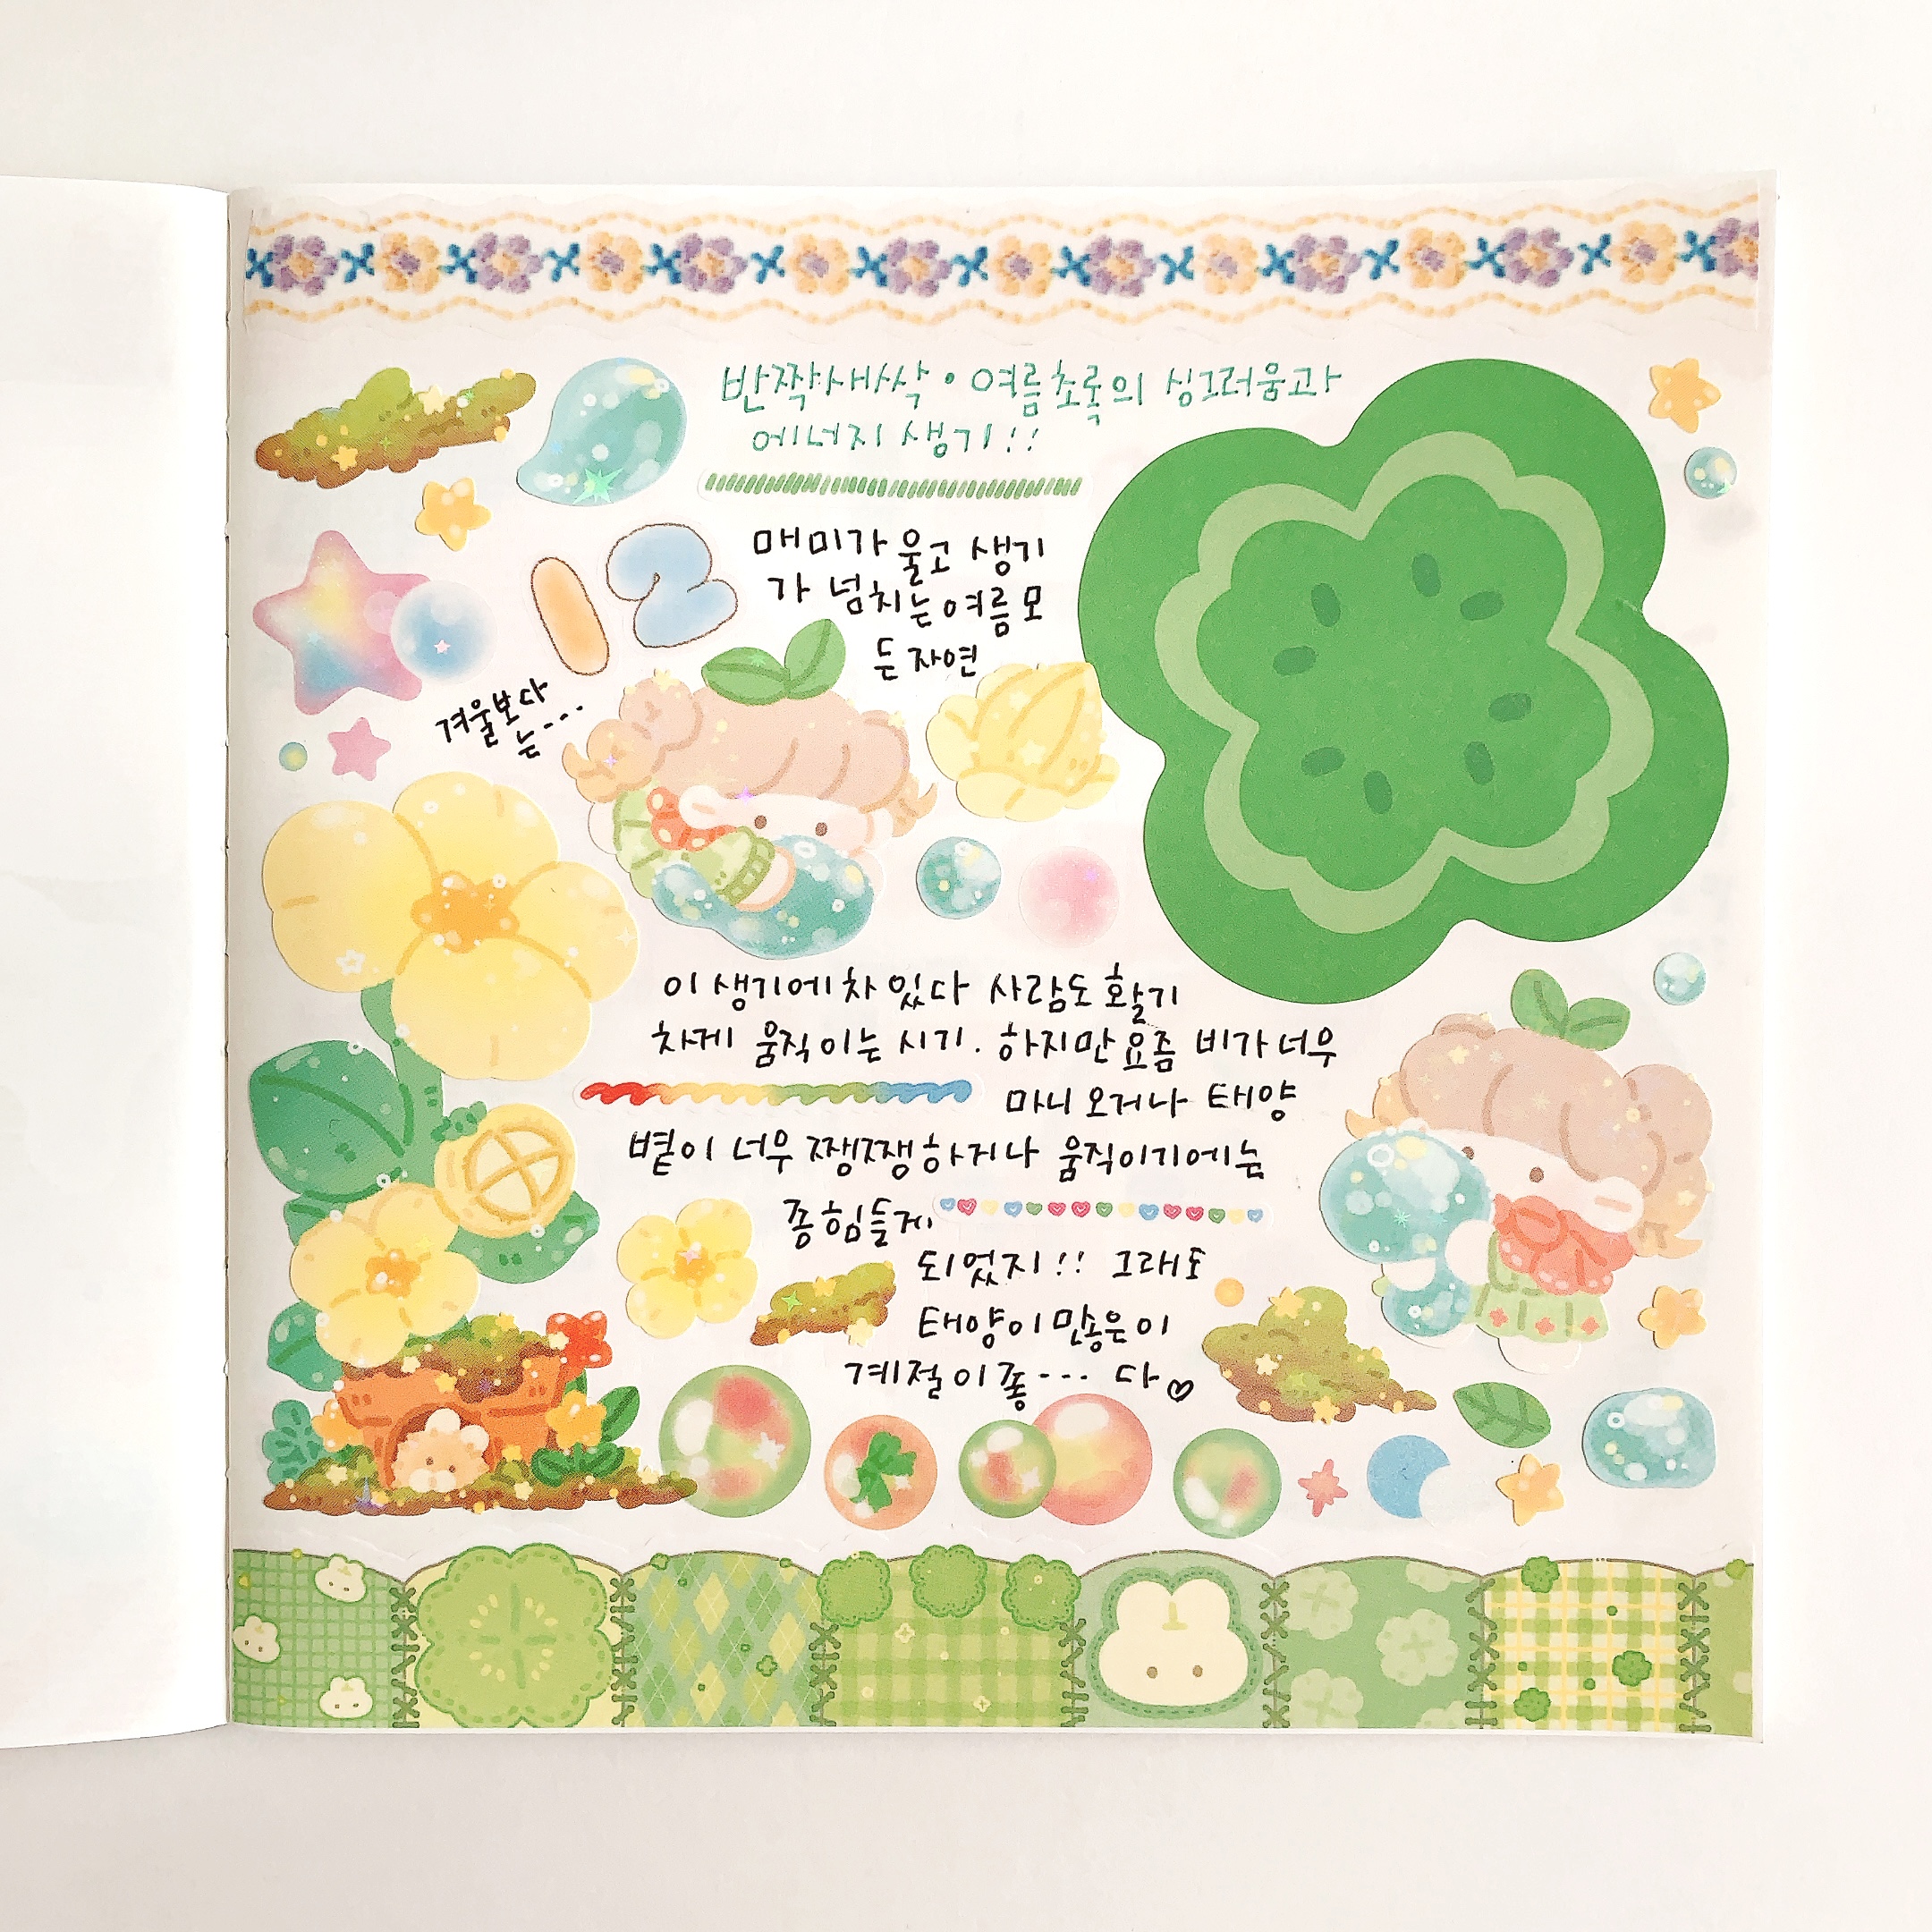 반짝새싹 • 여름초록의 싱그러움과
에너지 생기!!
12
매미가 울고 생기
가 넘치는 여름 모
든 자연
겨울보다
는...
이 생기에 차 있다 사람도 활기
차게 움직이는 시기. 하지만 요즘 비가 너무
마니 오거나 태양
볕이 너무 쨍쨍하거나 움직이기에는
종 힘들게
되었지!! 그래도
태양이 만송은이
계절이 좋... 다♡